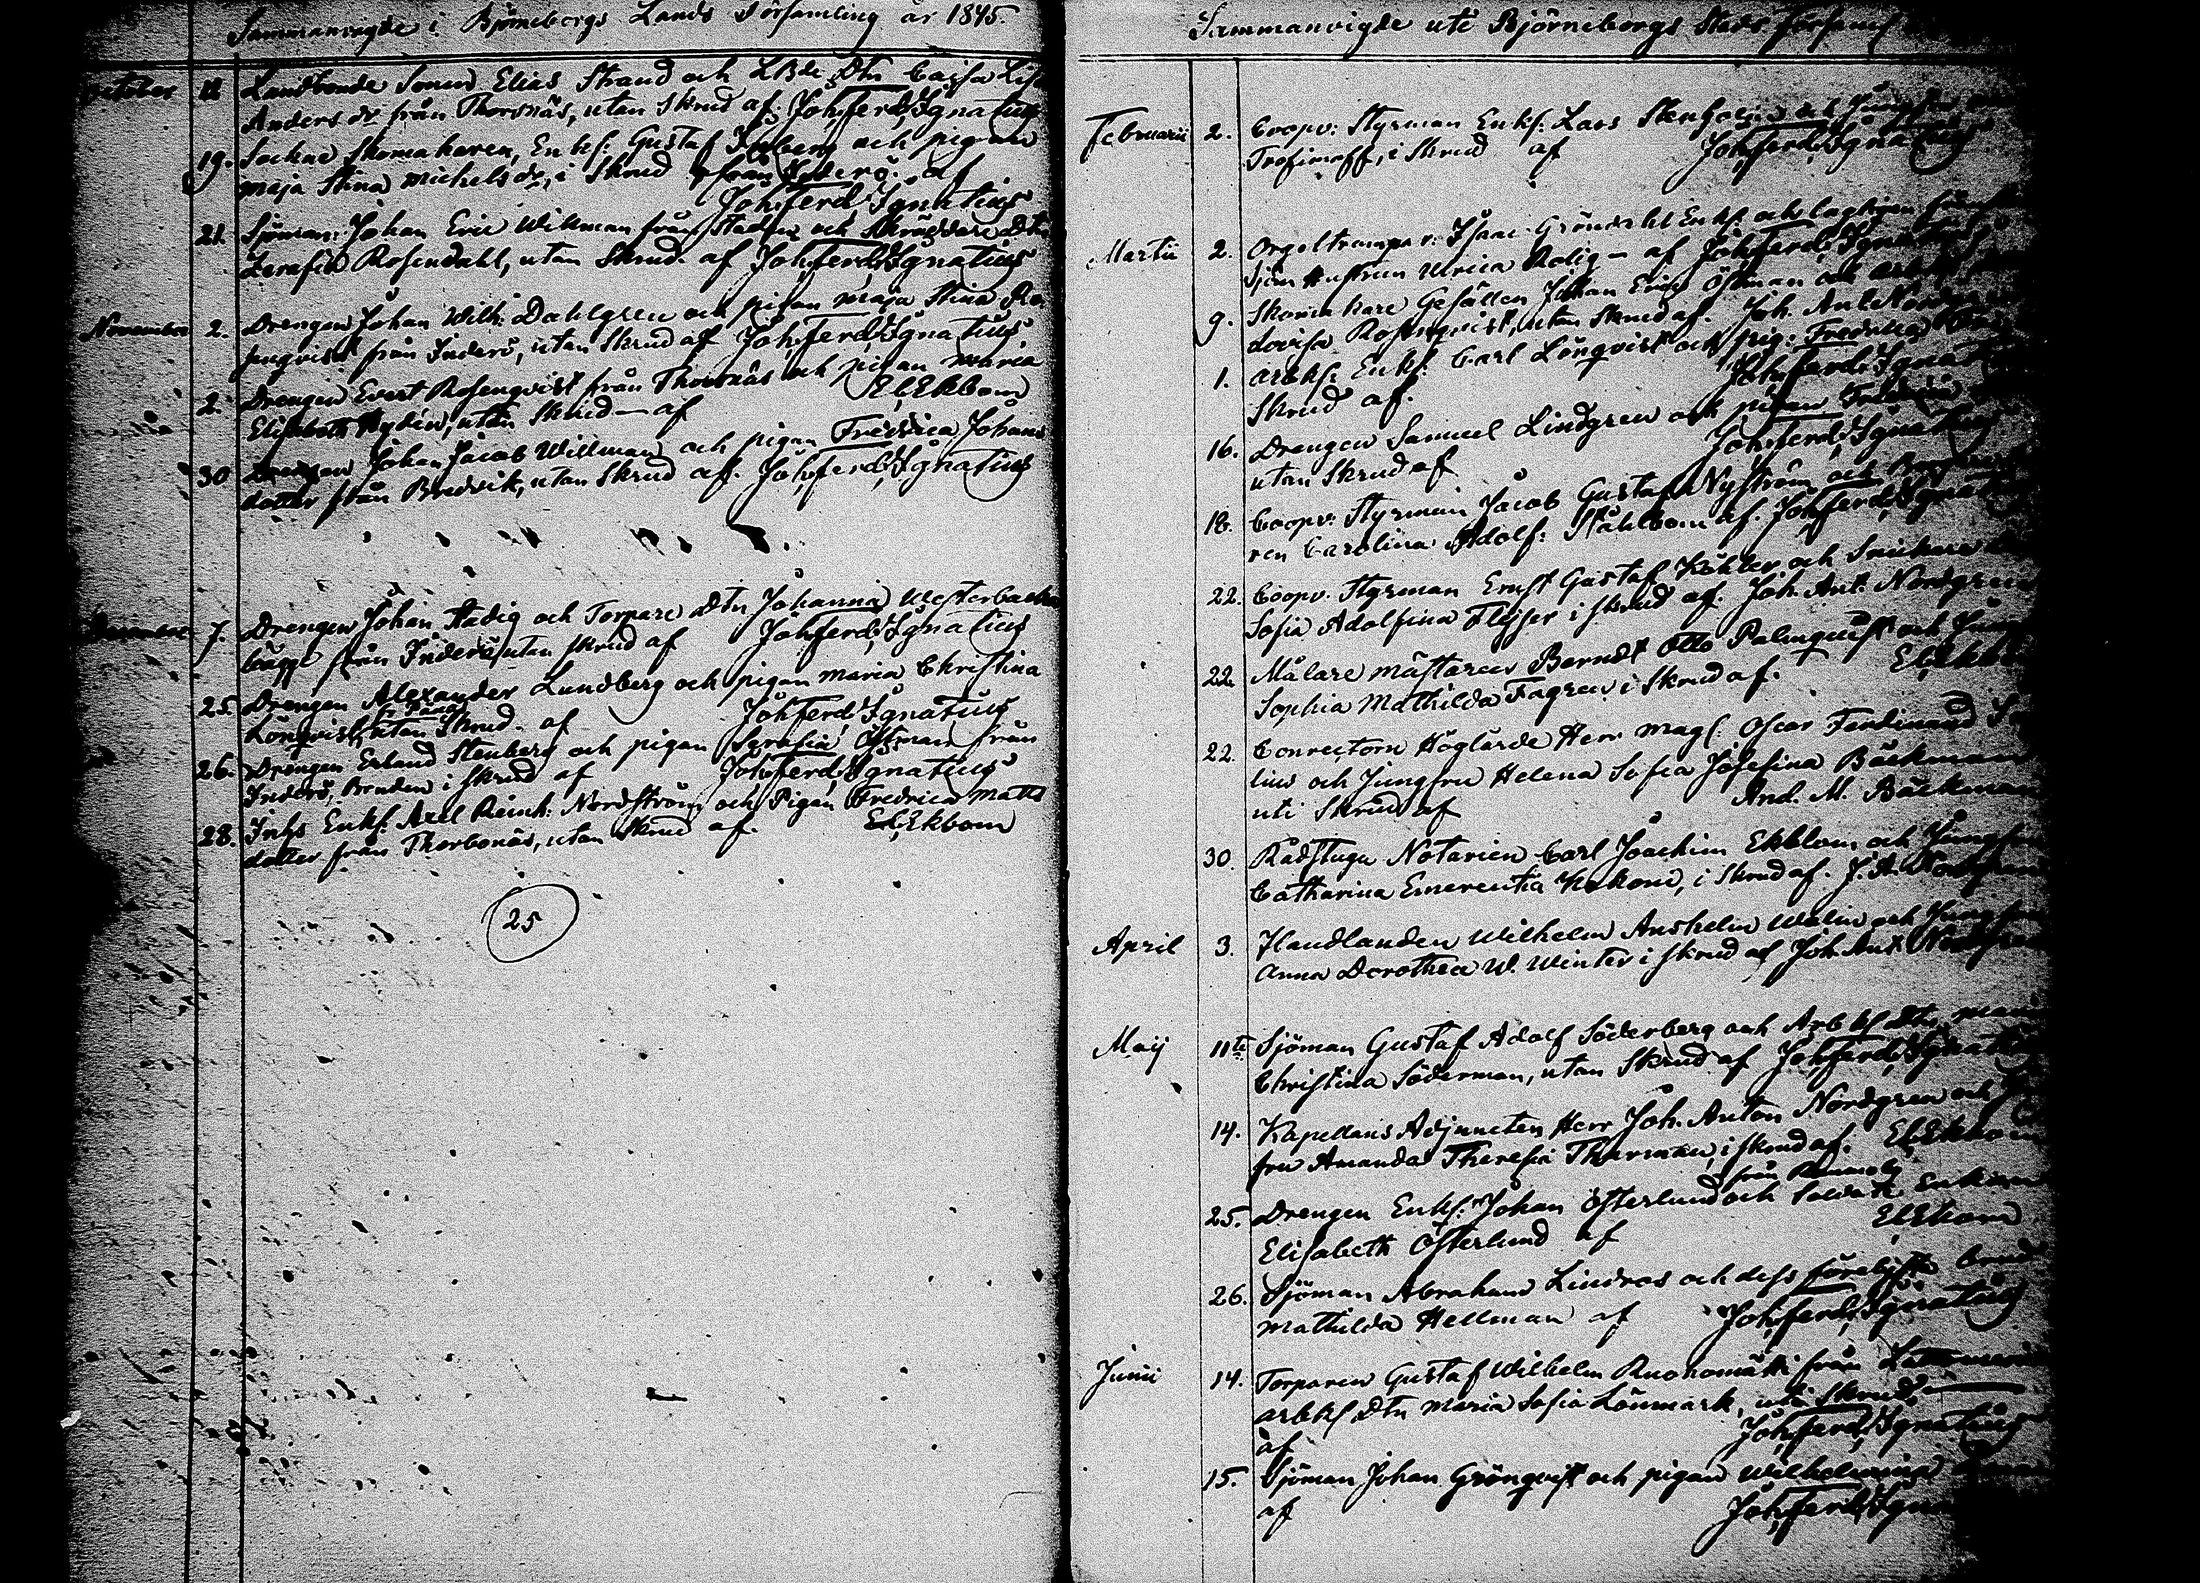 Sammanvigde i Björneborgs Lands Församling år 1845.
October 11 Landbonde Sonen Elias Strand och LBde Dtn Cajsa Lisa
Anders dr från Thorsnäs, utan Skrud af Joh. Ferd. Ignatius
19. Sockne Skomakaren, Enkf: Gustaf och pigan
Maja Stina Michels dr, i Skrud från Inderö. af
Joh. Ferd. Ignatius
21. Sjöman Johan Eric Willman från Staden och Skräddare Dtn
Serafia Rosendahl, utan Skrud. af Joh. Ferd. Ignatius
November 2. Drengen Johan Wilh: Dahlgren och pigan Maja Stina Ro-
senqvist från Inderö, utan Skrud af Joh. Ferd. Ignatius
2. Drengen Evert Rosenqvist från Thorsnäs och pigan Maria
Elisabeth Nydén, utan Skrud — af El. Ekbom
30 Drengen Johan Jacob Willman och pigan Fredrica Johans
dotter från Bredvik, utan Skrud af. Joh. Ferd. Ignatius
December 7. Drengen Johan Stadig och Torpare Dtn Johanna Westerbacka
bägge från Inderö utan Skrud af Joh. Ferd. Ignatius
25. Drengen Alexander Lundberg och pigan Maria Christina
Lönqvist, utan Skrud. af Joh. Ferd. Ignatius
26. Drengen Erland Stenberg och pigan Serafia Östman från
Inderö, Bruden i Skrud af Joh. Ferd. Ignatius
28. Inhs Enkf. Axel Reinh. Nordström och Pigan Fredrica Matts
dotter från Thorbonäs, utan Skrud af. El. Ekbom
25
Sammanvigde uti Björneborgs Stads Församl
Februarii 2. Coopv: Styrman Enkf: Lars Stenholm och Jungfru
Trofimoff, i Skrud af Joh. Ferd. Ignatius
Martii 2. Orgeltrampar. Isaac Gröndahl Enkf. och
Sjöm Hustrun Ulrica Rolig — af Joh. Ferd. Ignatius
9. Skomakare Gesällen Johan Eric Östman och
Lovisa Rosenqvist, utan Skrud af. Joh. Ant. Nordgren
1. Arbkf: Enkf: Carl Lönqvist och pig: Fredrica
Skrud af. Joh. Ferd. Ignatius
16. Drengen Samuel Lindgren och pigan Fredrica
utan Skrud af Joh. Ferd. Ignatius
18. Coopv: Styrman Jacob Gustaf Nyström och
ren Carolina Adolf: Ståhlbom af. Joh. Ferd. Ignatius
22. Coopv. Styrman Ernst Gustaf Köhler och Snickare
Sofia Adolfina Flejser i Skrud af. Joh. Ant. Nordgren
22. Målare Mästaren Berndt Otto Palmquist och Jung
Sophia Mathilda Fagren i Skrud af. El. Ekbom
22. Conrectorn Höglärde Herr Mag: Oscar Ferdinand
lius och Jungfru Helena Sofia Josefina Bäckman
uti Skrud af And. M. Bäckman
30. Rådstugu Notarien Carl Joachim Ekblom och Jungfru
Catharina Emerentia, i Skrud af. J. A. Nordgren
April 3. Handlanden Wilhelm Anshelm Walin och Jungfru
Anna Dorothea W. Winter i Skrud af Joh. Ant. Nordgren
Maij 11te Sjöman Gustaf Adolf Söderberg och Arbkf Dtn Maria
Christina Söderman, utan Skrud af Joh. Ferd. Ignatius
14. Kapellans Adjuncten Herr Joh. Anton Nordgren och
fru Amanda Theresia Thurman, i Skrud af. El. Ekbom
25. Drengen Enkf. Johan Österlund och Soldate Enkan
Elisabeth Österlund af El. Ekbom
26. Sjöman Abraham Lindros och dess förelyste brud
Mathilda Hellman af Joh. Ferd. Ignatius
Junii 14. Torparen Gustaf Wilhelm Ruohomäki från
Arbkf Dtn Maria Sofia Lönmark, uti Skrud,
af Joh. Ferd. Ignatius
15. Sjöman Johan Grönqvist och pigan Wilhelmina
af Joh. Ferd. Ignatius